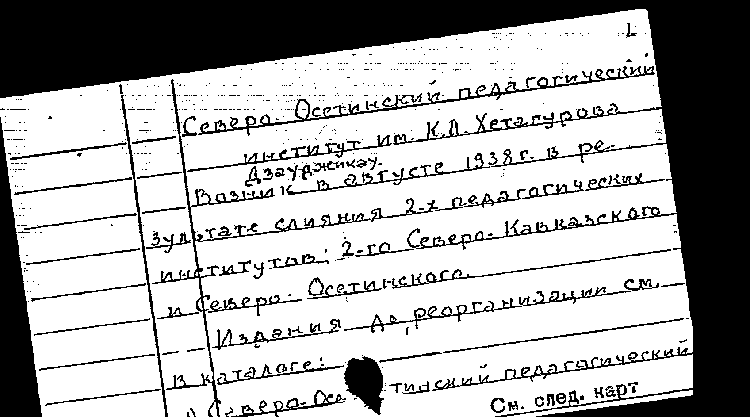 1
Северо-Осетинский педагогический
институт им. К.Л. Хетагурова
Дзауджикау.
Возник в августе 1938 г. в ре-
зультате слияния 2-х педагогических
институтов: 2-го Северо-Кавказского
и Северо-Осетинского.
Издания до реорганизации см.
в каталоге:
Северо-Осе тинский педагогический
См. след. карт